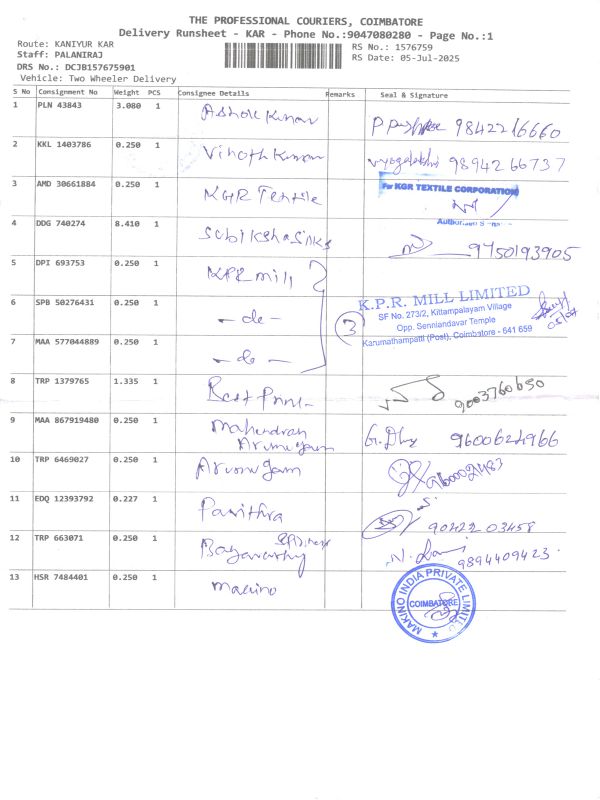 THE PROFESSIONAL COURIERS, COIMBATORE
Delivery Runsheet - KAR - Phone No.:9047080280 - Page No.:1
Route: KANIYUR KAR
RS No.: 1576759
Staff: PALANIRAJ
RS Date: 05-Jul-2025
DRS No.: DCJB157675901
Vehicle: Two Wheeler Delivery
S No Consignment No Weight PCS Consignee Details Remarks Seal & Signature
1 PLN 43843 3.080 1 Ashok Kumar 9842216660
2 KKL 1403786 0.250 1 Vinothkumar 9894266737
3 AMD 30661884 0.250 1 KGR Textile For KGR TEXTILE CORPORATION
4 DDG 740274 8.410 1 9750193905
5 DPI 693753 0.250 1 KPR mill
6 SPB 50276431 0.250 1 - do - 3 K.P.R. MILL LIMITED
SF No. 273/2, Kittampalayam Village
Opp. Senniandavar Temple
Karumathampatti (Post), Coimbatore - 641 659
7 MAA 577044889 0.250 1 - do -
8 TRP 1379765 1.335 1 9003760650
9 MAA 867919480 0.250 1 Mahendran
Arumugam 9600624966
10 TRP 6469027 0.250 1 Arumugam
11 EDQ 12393792 0.227 1 Pavithra 90422 03458
12 TRP 663071 0.250 1 9894409423
13 HSR 7484401 0.250 1 Makino
MAKINO INDIA PRIVATE LIMITED
COIMBATORE